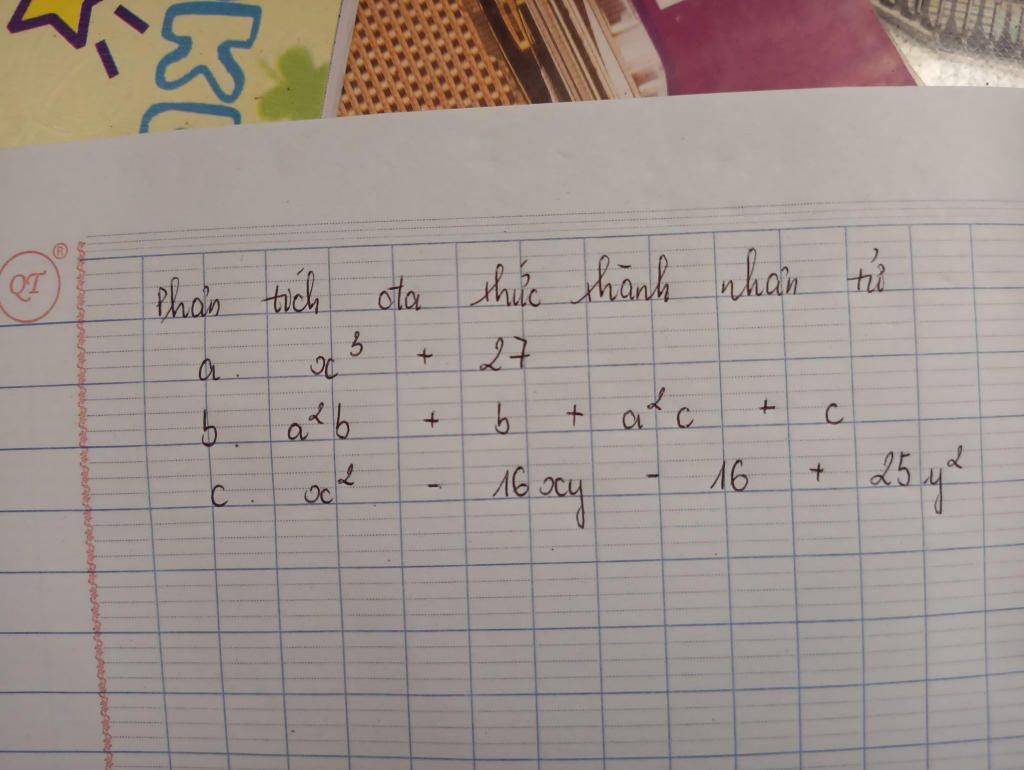 K
QT ®
Phân tích đa thức thành nhân tử
a. x³ + 27
b. a²b + b + a²c + c
c. x² - 16xy - 16 + 25y²